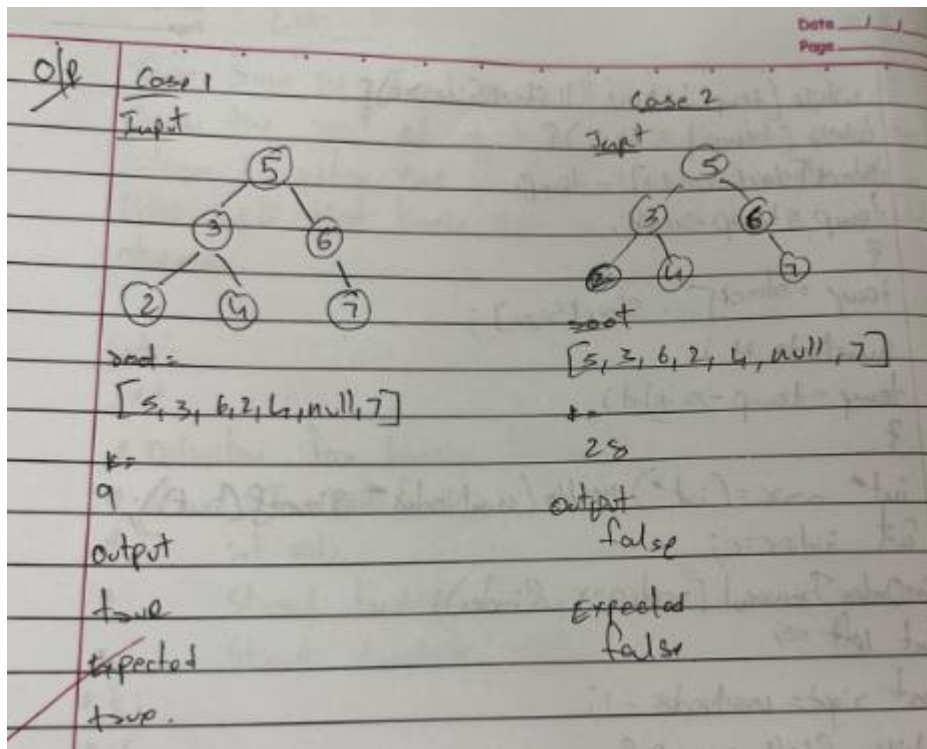 Date / /
Page
O/P
Case 1
Input
5
3 6
2 4 7
root =
[5, 3, 6, 2, 4, null, 7]
k =
9
output
true
Expected
true.
Case 2
Input
5
3 6
2 4 7
root
[5, 3, 6, 2, 4, null, 7]
k =
28
output
false
Expected
false